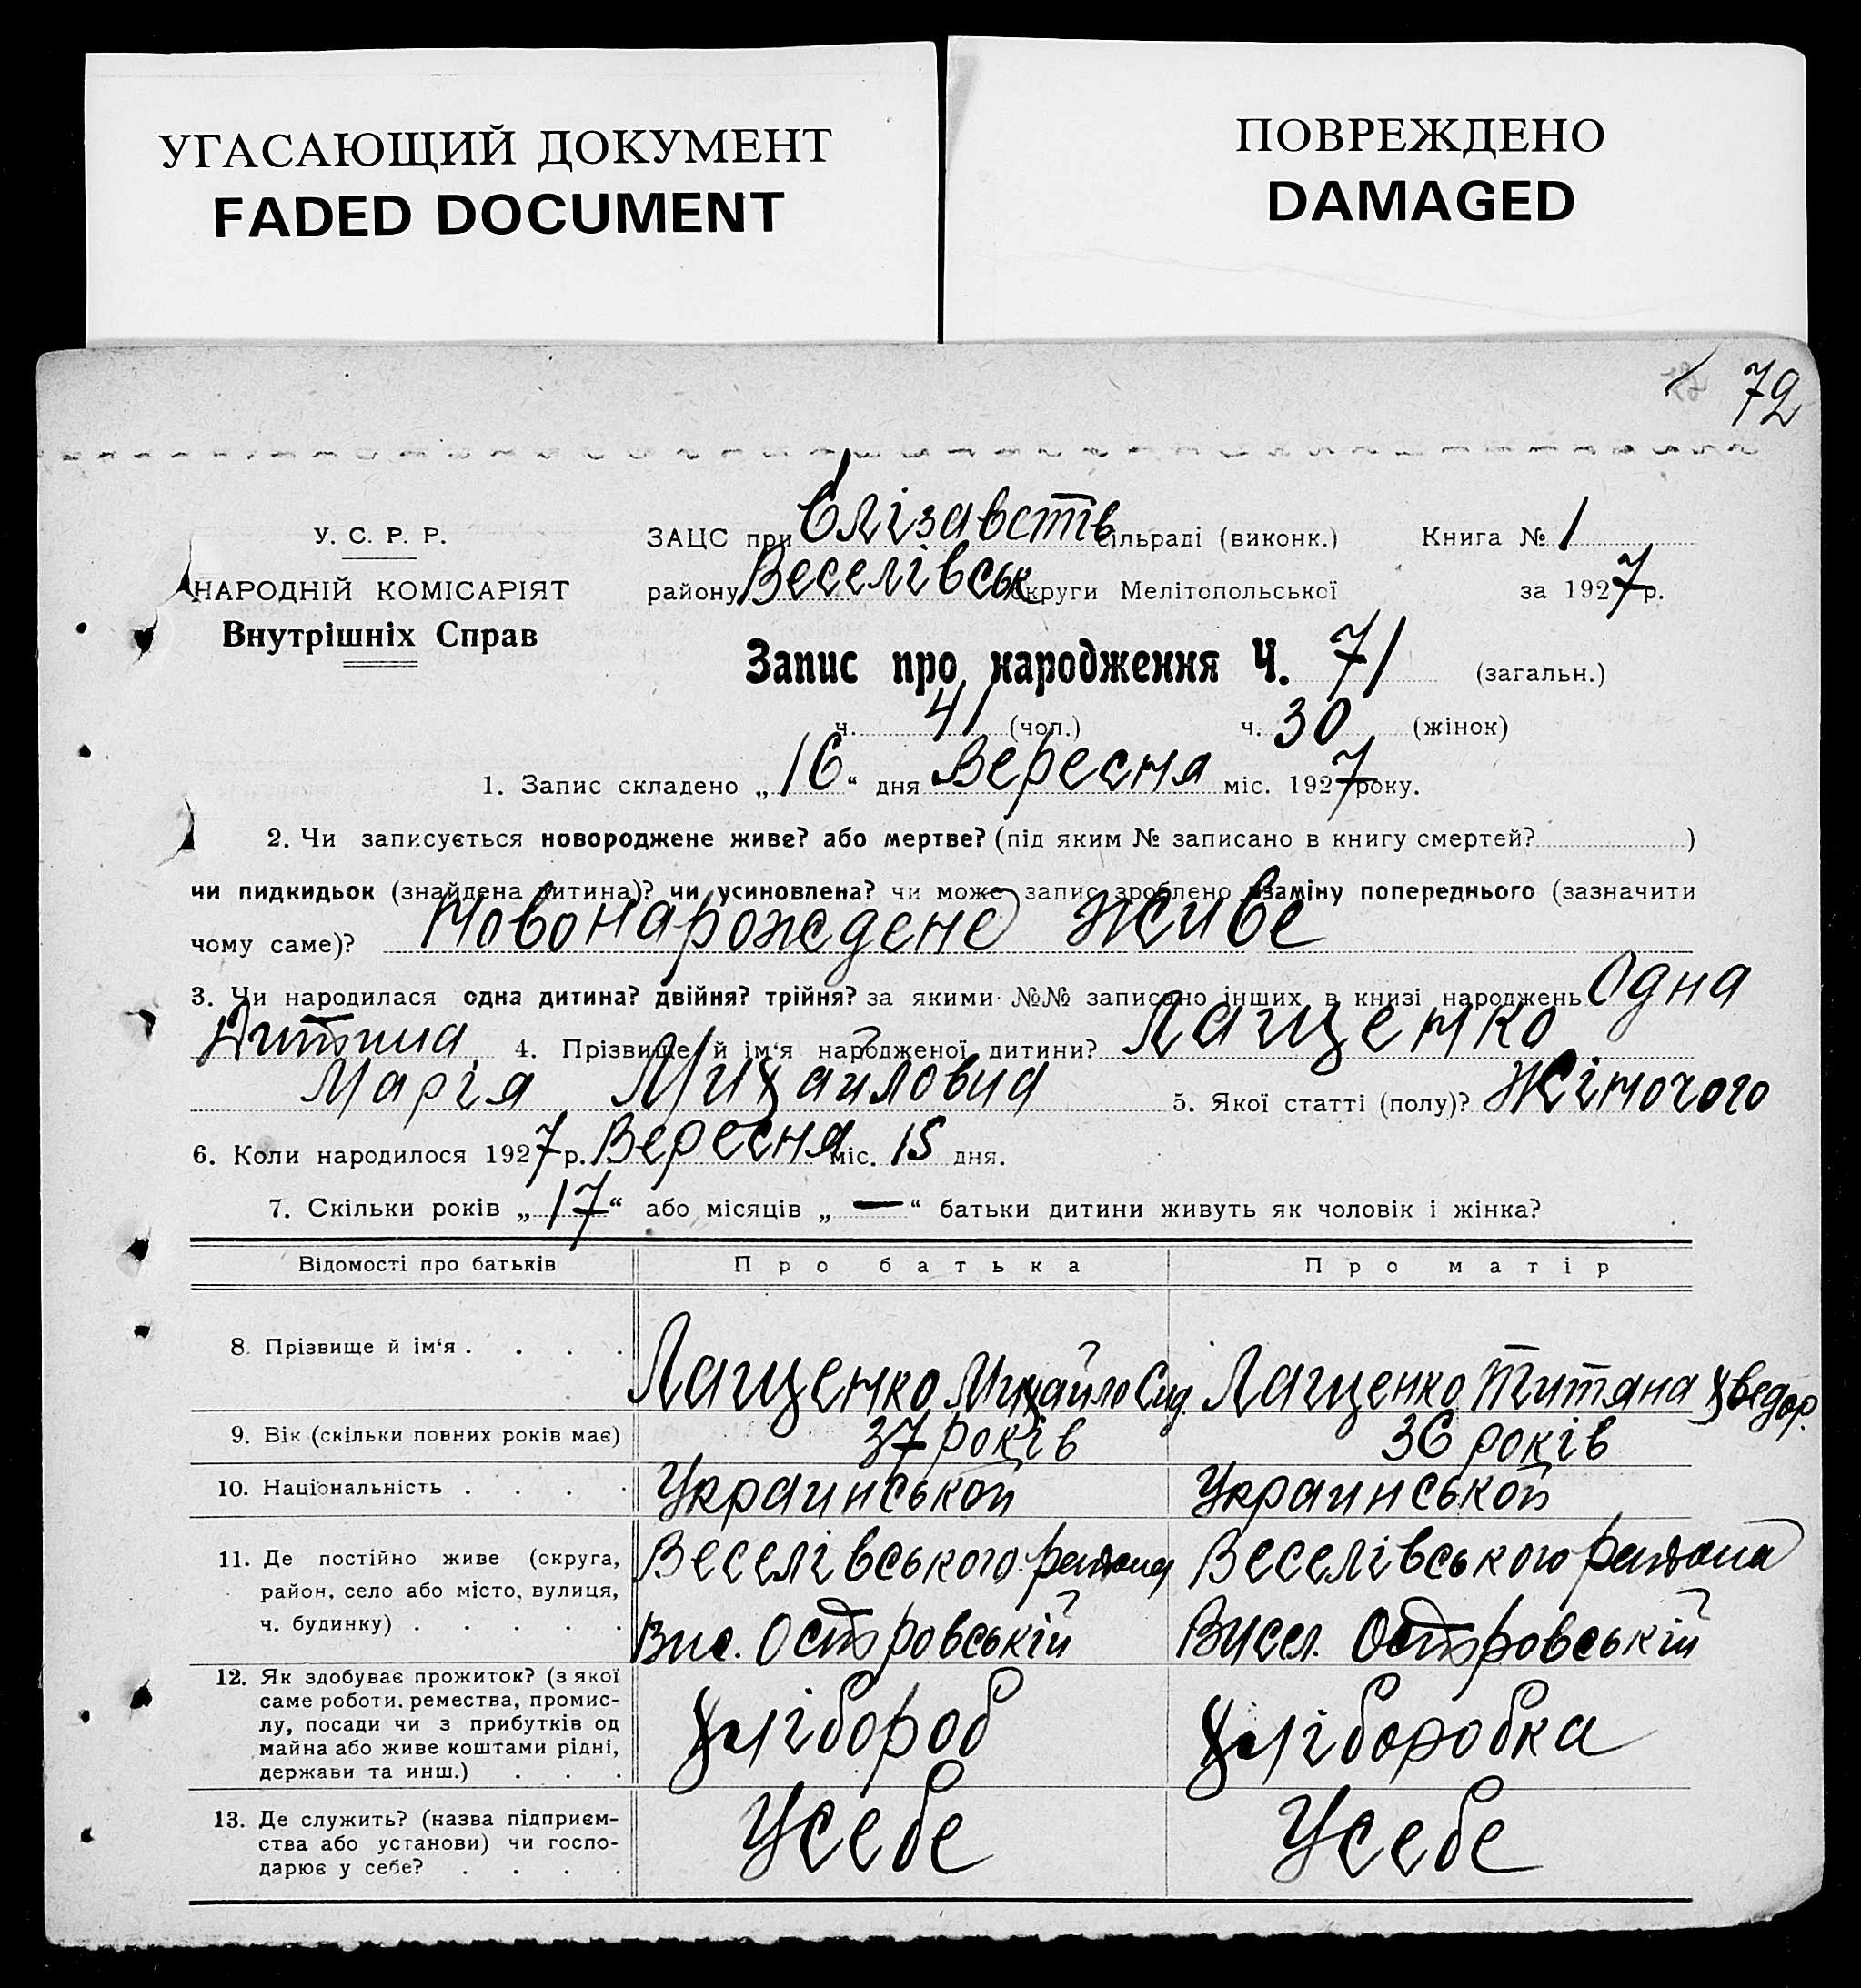 УГАСАЮЩИЙ ДОКУМЕНТ
FADED DOCUMENT
ПОВРЕЖДЕНО
DAMAGED
72
У. С. Р. Р.
НАРОДНІЙ КОМІСАРІЯТ
Внутрішніх Справ
ЗАЦС при Єлізаветів сільраді (виконк.) Книга № 1
району Веселівськ округи Мелітопольської за 1927 р.
Запис про народження Ч. 71 (загальн.)
ч. 41 (чол.) ч. 30 (жінок)
1. Запис складено „16“ дня Вересня міс. 1927 року.
2. Чи записується новороджене живе? або мертве? (під яким № записано в книгу смертей? )
чи пидкидьок (знайдена дитина)? чи усиновлена? чи може запис зроблено взаміну попереднього (зазначити
чому саме)? Новонарождене живе
3. Чи народилася одна дитина? двійня? трійня? за якими №№ записано інших в книзі народжень Одна
Дитина 4. Прізвище й ім‘я народженої дитини? Лащенко
Марія Михайловна 5. Якої статті (полу)? Жіночого
6. Коли народилося 1927 р. Вересня міс. 15 дня.
7. Скільки років „17“ або місяців „—“ батьки дитини живуть як чоловік і жінка?
Відомості про батьків Про батька Про матір
8. Прізвище й ім‘я . . . . Лащенко Михайло Сид. Лащенко Титяна Хведор.
9. Вік (скільки повних років має) 37 років 36 років
10. Національність . . . . Украинськой Украинськой
11. Де постійно живе (округа,
район, село або місто, вулиця,
ч. будинку) . . . . .
Веселівського района Веселівського района
Вис. Островській Висел. Островській
12. Як здобуває прожиток? (з якої
саме роботи, ремества, промис-
лу, посади чи з прибутків од
майна або живе коштами рідні,
держави та инш.) . . .
Хлібороб Хліборобка
13. Де служить? (назва підприєм-
ства або установи) чи госпо-
дарює у себе? . . . .
Усебе Усебе